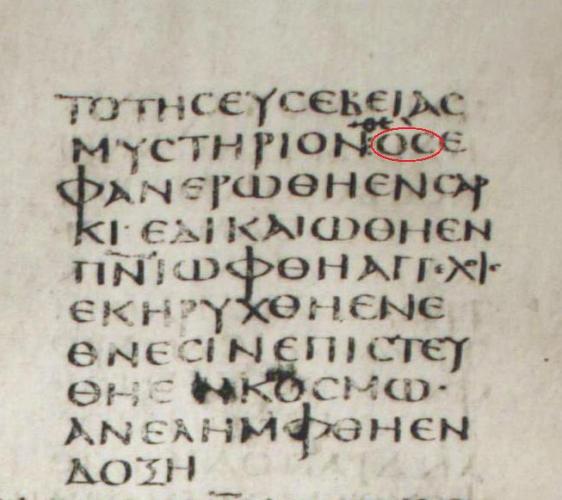 ΤΟΤΗϹΕΥϹΕΒΕΙΑϹ
θε
ΜΥϹΤΗΡΙΟΝ ΟϹΕ
ΦΑΝΕΡΩΘΗΕΝϹΑΡ
ΚΙ·ΕΔΙΚΑΙΩΘΗΕΝ
ΠΝ̅Ι̅ΩΦΘΗΑΓΓ·Χ·Ι·
ΕΚΗΡΥΧΘΗΕΝΕ
ΘΝΕϹΙΝΕΠΙϹΤΕΥ
ΘΗΕΝΚΟϹΜΩ·
ΑΝΕΛΗΜΦΘΗΕΝ
ΔΟΞΗ